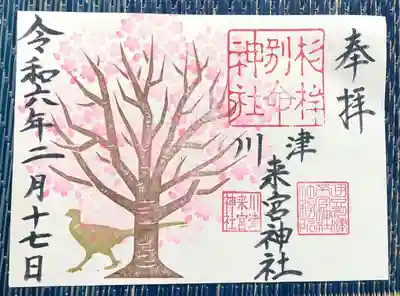 奉拝
杉桙
別命
神社
川津
来宮神社
川津
来宮
神社
令和六年二月十七日